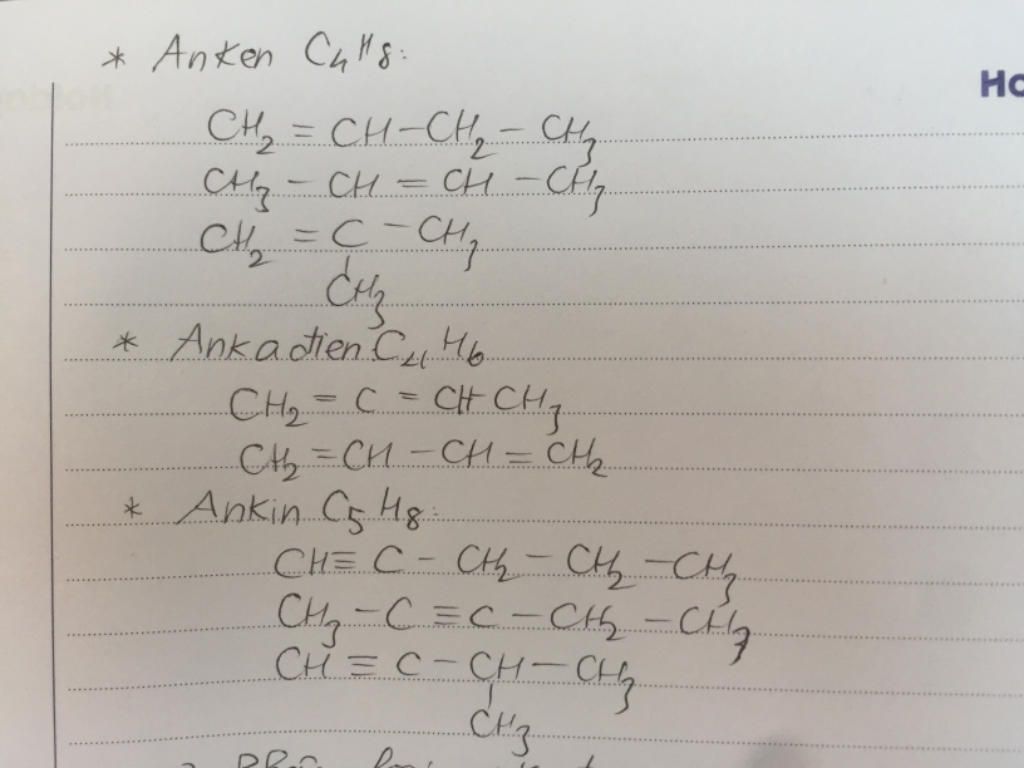 * Anken C₄H₈:
Ho
CH₂ = CH - CH₂ - CH₃
CH₃ - CH = CH - CH₃
CH₂ = C - CH₃
|
CH₃
* Ankadien C₄H₆
CH₂ = C = CH - CH₃
CH₂ = CH - CH = CH₂
* Ankin C₅H₈:
CH ≡ C - CH₂ - CH₂ - CH₃
CH₃ - C ≡ C - CH₂ - CH₃
CH ≡ C - CH - CH₃
|
CH₃